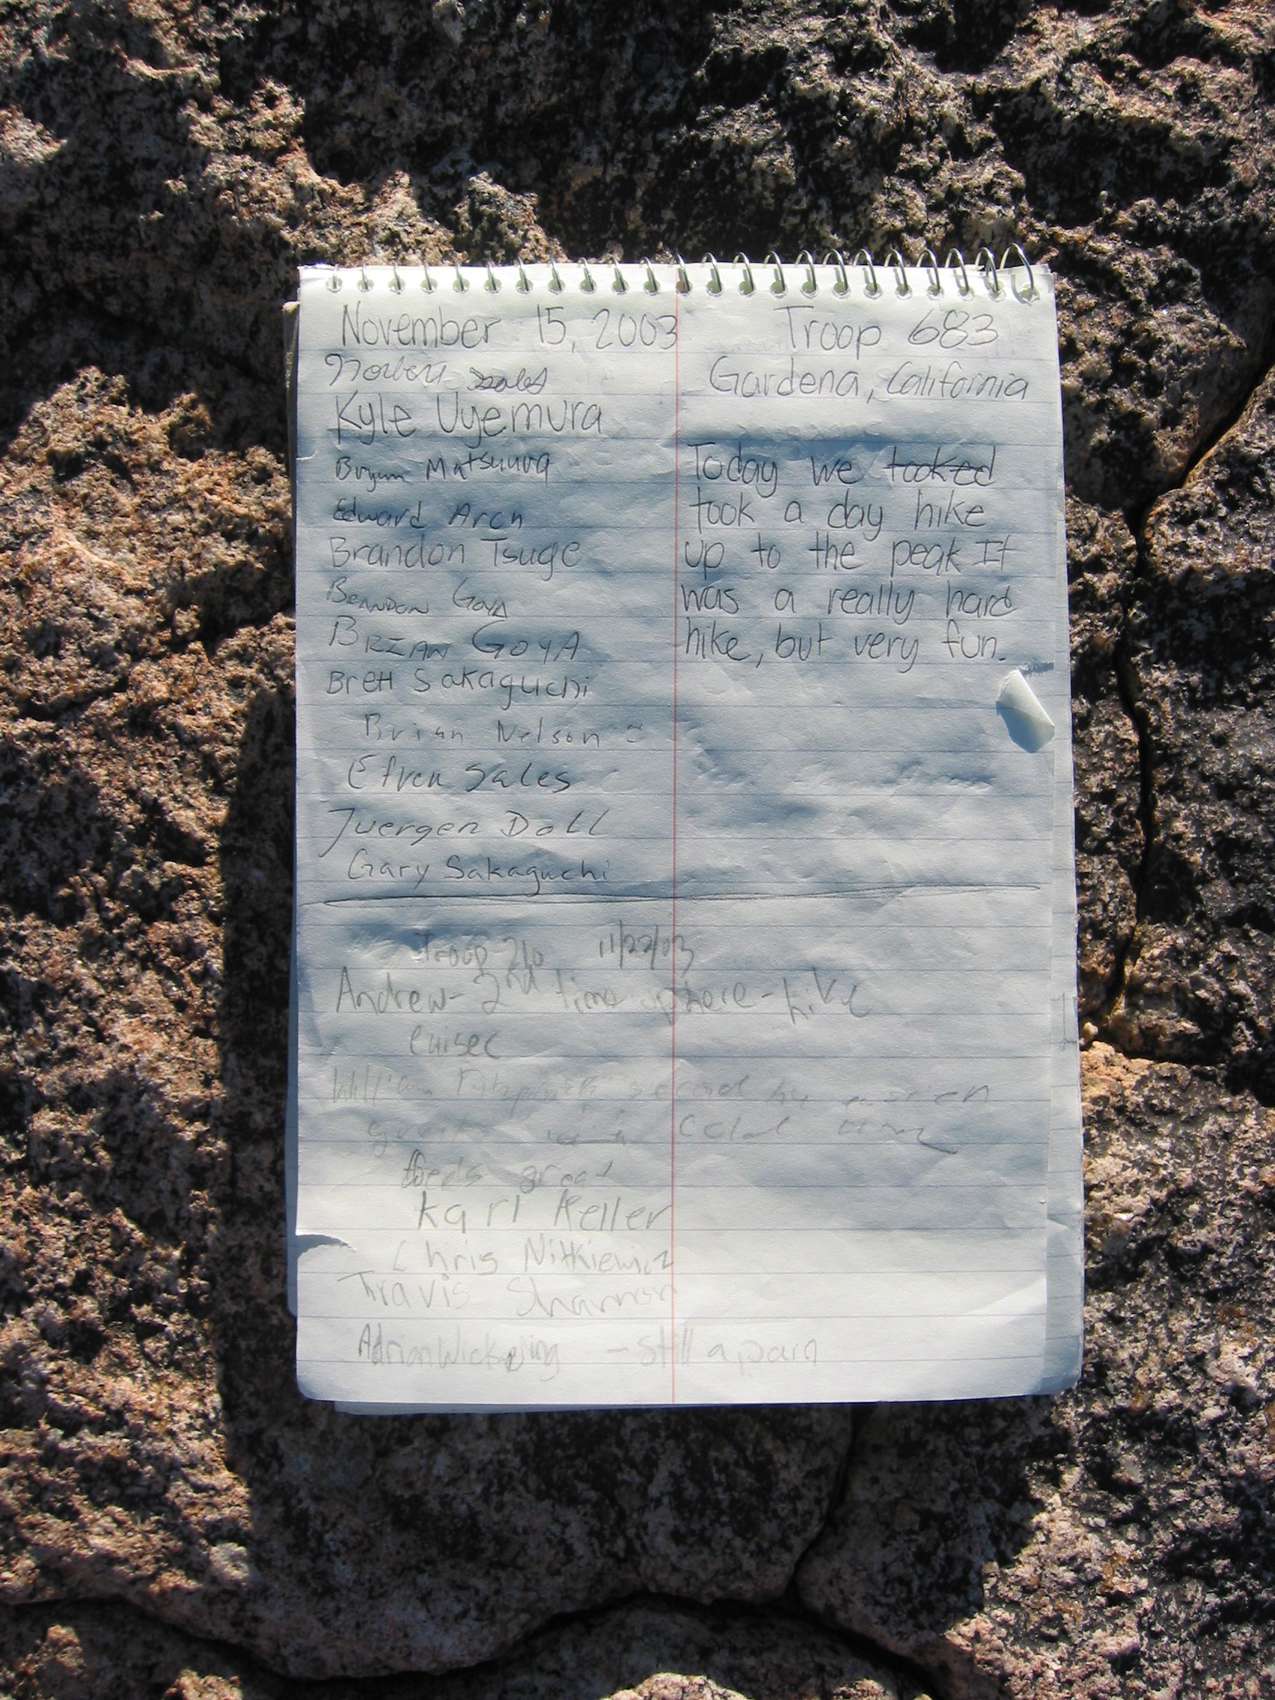 November 15, 2003 Troop 683
Gardena, California
Kyle Uyemura
Bryan Matsuura
Edward Arch
Brandon Tsuge
Brandon Goya
Brian Goya
Brett Sakaguchi
Brian Nelson
Efren Sales
Juergen Doll
Gary Sakaguchi
Today we tooked
took a day hike
up to the peak It
was a really hard
hike, but very fun.
Troop 11/22/03
Andrew - 2nd time
William
great
Karl Keller
Chris Nitkiewicz
Travis Shannon
Adrian - still a pain